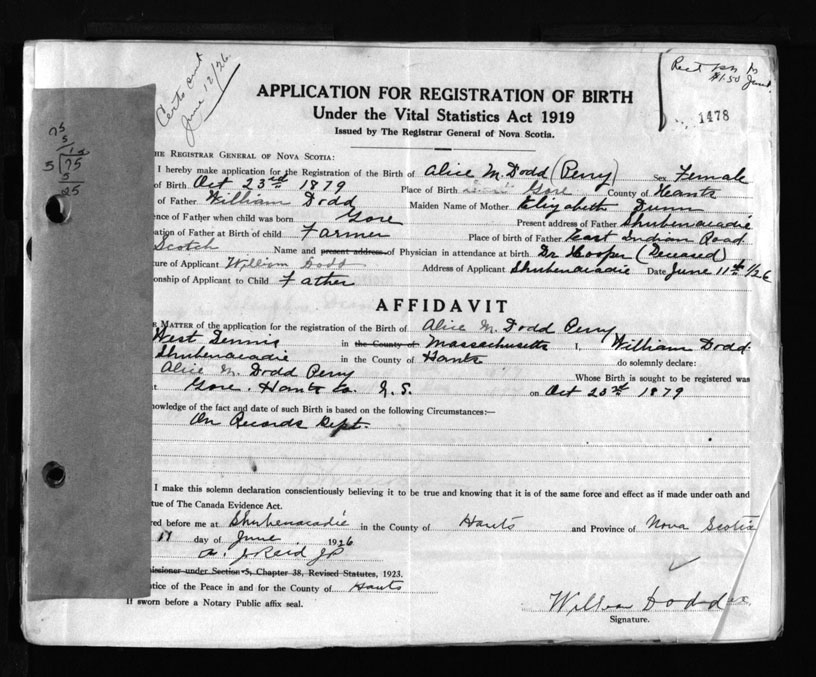 Certs sent
June 12/26
Rect
$1.50
1478
75
5
15
5 75
5
25
APPLICATION FOR REGISTRATION OF BIRTH
Under the Vital Statistics Act 1919
Issued by The Registrar General of Nova Scotia.
HE REGISTRAR GENERAL OF NOVA SCOTIA:
I hereby make application for the Registration of the Birth of Alice M. Dodd (Perry) Sex Female
of Birth Oct 23rd 1879 Place of Birth Gore County of Hants
of Father William Dodd Maiden Name of Mother Elizabeth Dunn
ence of Father when child was born Gore Present address of Father Shubenacadie
ation of Father at Birth of child Farmer Place of birth of Father East Indian Road
Scotch Name and present address of Physician in attendance at birth Dr Hooper (Deceased)
ture of Applicant William Dodd Address of Applicant Shubenacadie Date June 11th/26
onship of Applicant to Child Father
AFFIDAVIT
E MATTER of the application for the registration of the Birth of Alice M. Dodd Perry
West Dennis in the County of Massachusetts I, William Dodd
Shubenacadie in the County of Hants do solemnly declare:
Alice M. Dodd Perry Whose Birth is sought to be registered was
at Gore. Hants Co. N.S. on Oct 23rd 1879
nowledge of the fact and date of such Birth is based on the following Circumstances:—
On Records Dept.
I make this solemn declaration conscientiously believing it to be true and knowing that it is of the same force and effect as if made under oath and
tue of The Canada Evidence Act.
red before me at Shubenacadie in the County of Hants and Province of Nova Scotia
11 day of June 1926
A. J. Reid JP
issioner under Section 5, Chapter 38, Revised Statutes, 1923.
stice of the Peace in and for the County of Hants
If sworn before a Notary Public affix seal.
William Dodd
Signature.